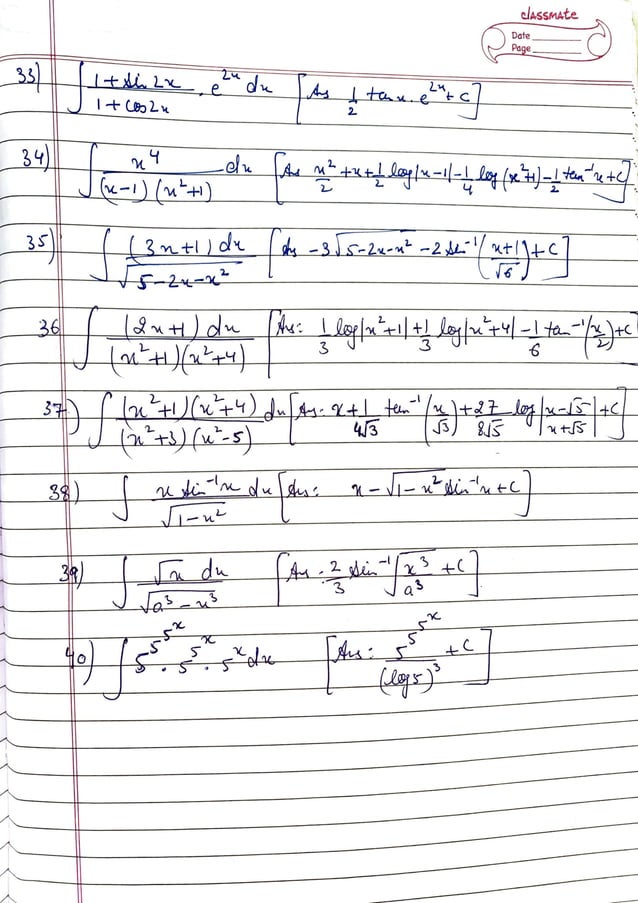 classmate
Date
Page
33) ∫ (1+sin2x)/(1+cos2x) . e^{2x} dx [Ans 1/2 tanx. e^{2x}+c]
34) ∫ x^4/((x-1)(x²+1)) dx [Ans x²/2 +x+1/2 log|x-1|-1/4 log(x²+1)-1/2 tan⁻¹x+C]
35) ∫ (3x+1)dx/√(5-2x-x²) [Ans -3√(5-2x-x²) -2 sin⁻¹((x+1)/√6)+C]
36 ∫ (2x+1)dx/((x²+1)(x²+4)) [Ans: 1/3 log|x²+1|+1/3 log|x²+4|-1/6 tan⁻¹(x/2)+C]
37) ∫ (x²+1)(x²+4)/((x²+3)(x²-5)) dx [Ans: x+1/(4√3) tan⁻¹(x/√3)+27/(8√5) log|(x-√5)/(x+√5)|+C]
38) ∫ x sin⁻¹x/√(1-x²) dx [Ans: x-√(1-x²) sin⁻¹x+C]
39) ∫ √x dx/√(a³-x³) [Ans: 2/3 sin⁻¹√(x³/a³)+C]
40) ∫ 5^{5^{5^x}} . 5^{5^x} . 5^x dx [Ans: 5^{5^{5^x}}/(log5)³ +C]